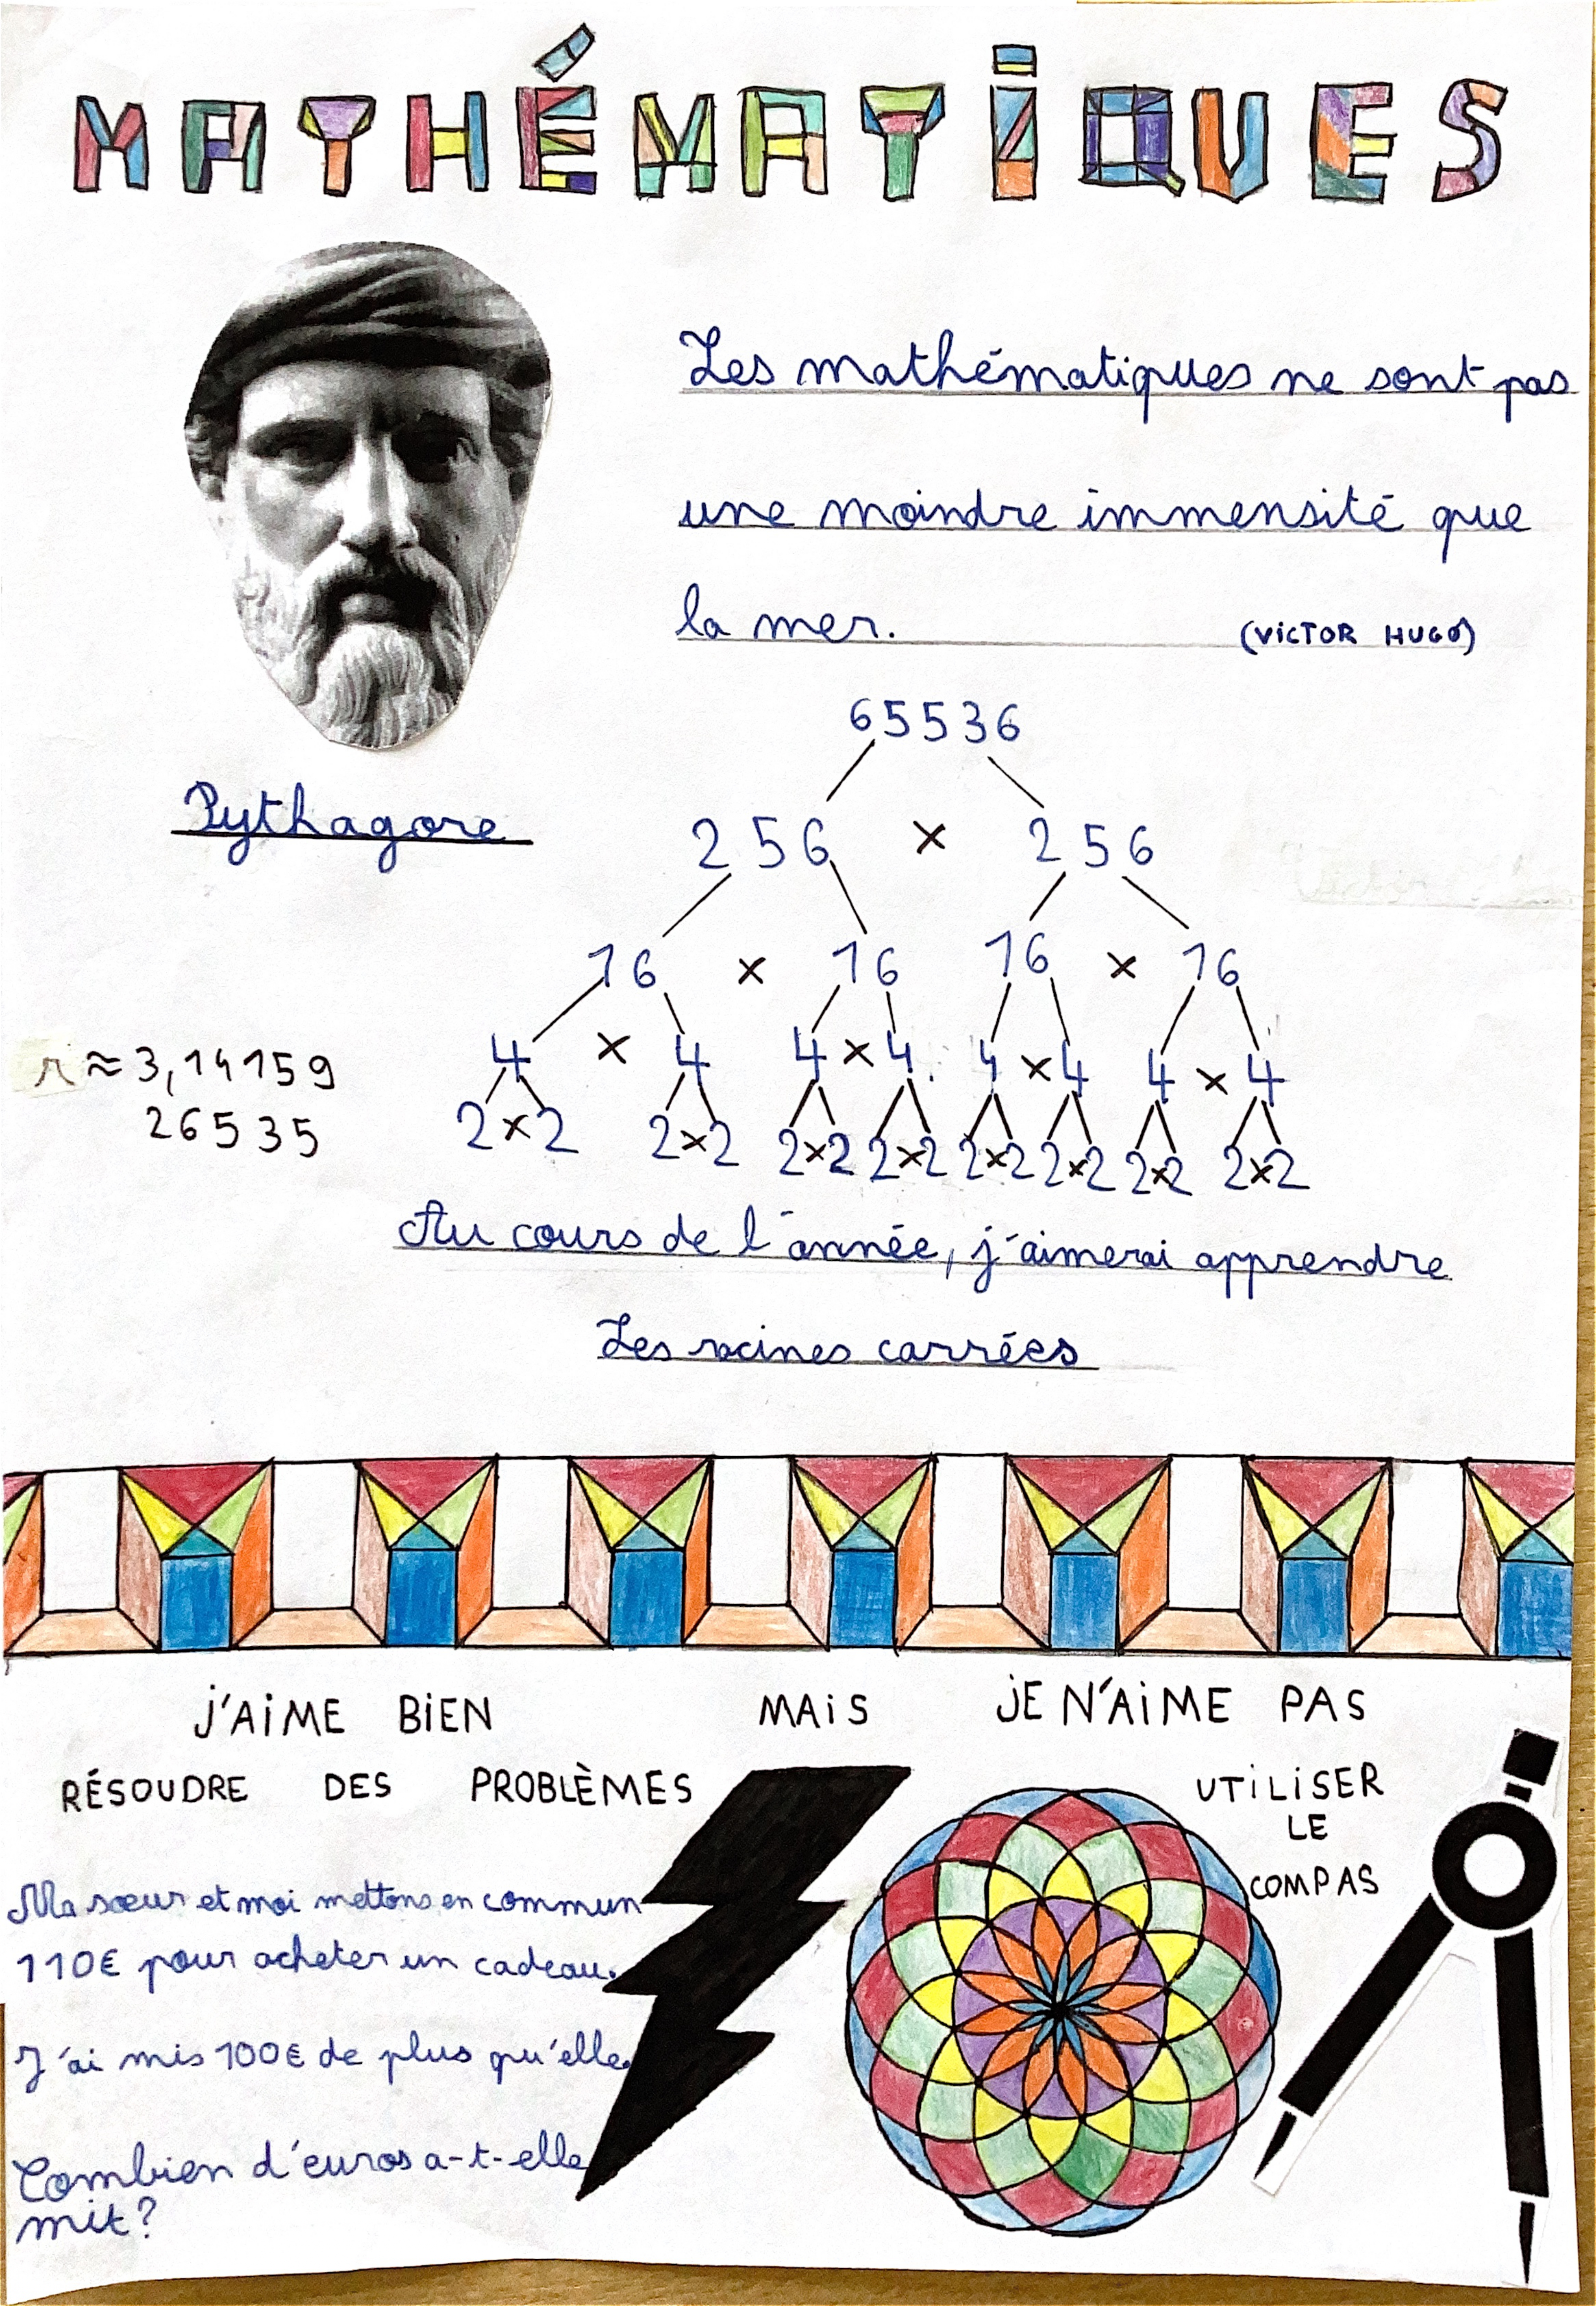 MATHÉMATIQUES
Les mathématiques ne sont pas
une moindre immensité que
la mer. (VICTOR HUGO)
Pythagore
65536
256 × 256
16 × 16 16 × 16
4 × 4 4 × 4 4 × 4 4 × 4
2×2 2×2 2×2 2×2 2×2 2×2 2×2 2×2
π ≈ 3,14159
26535
Au cours de l'année, j'aimerai apprendre
Les racines carrées
J'AIME BIEN MAIS JE N'AIME PAS
RÉSOUDRE DES PROBLÈMES
UTILISER
LE
COMPAS
Ma sœur et moi mettons en commun
110€ pour acheter un cadeau.
J'ai mis 100€ de plus qu'elle.
Combien d'euros a-t-elle
mit?